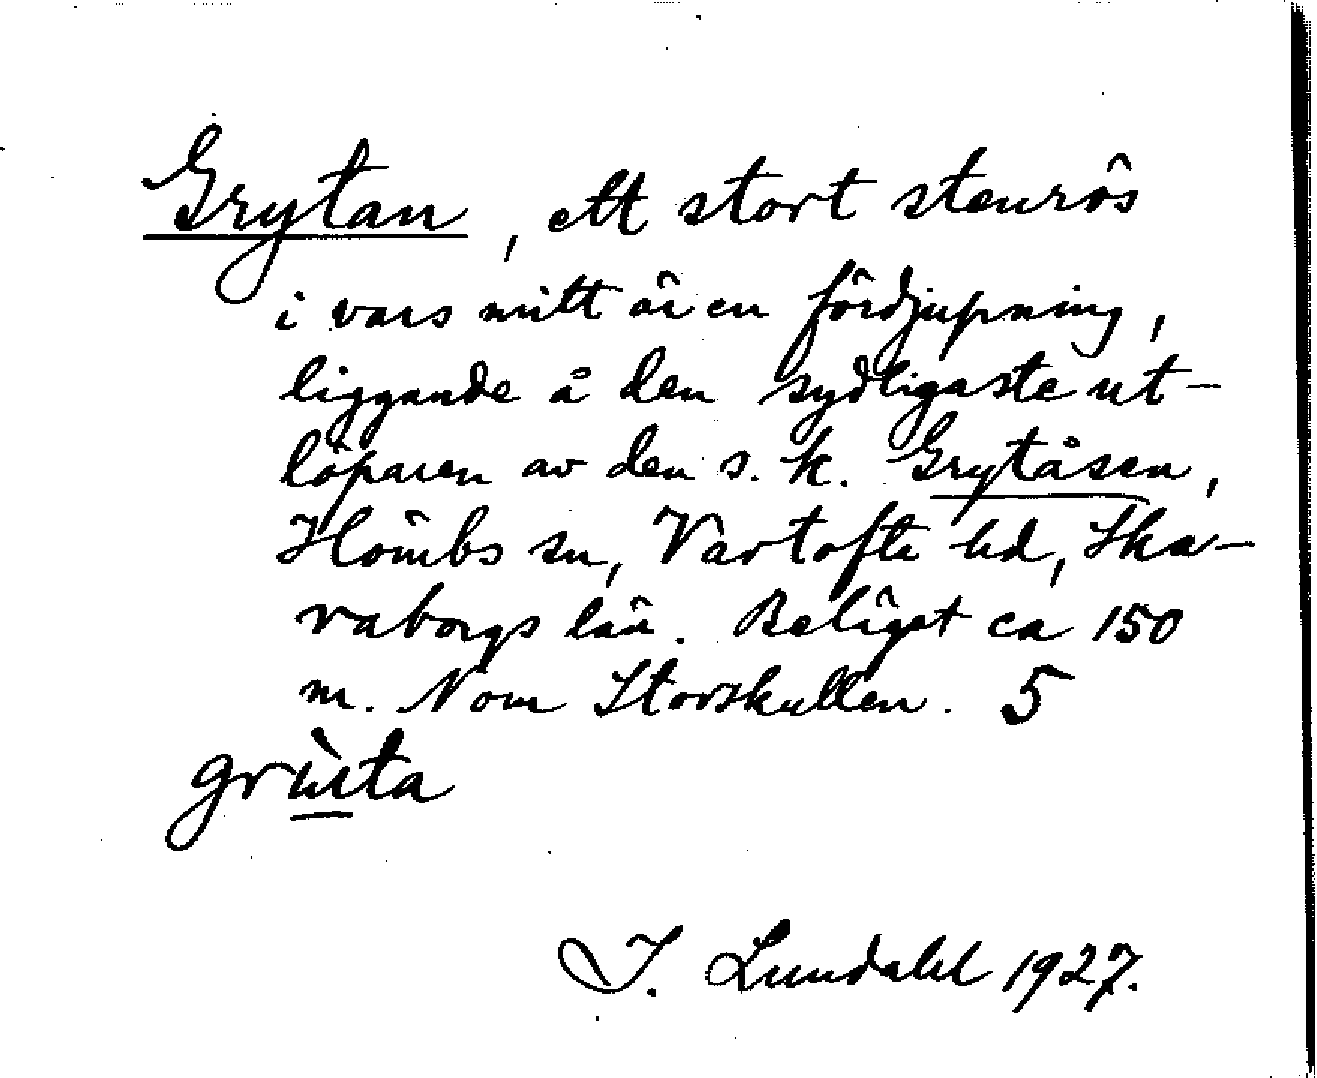 Grytan, ett stort stenrös
i vars mitt är en fördjupning,
liggande å den sydligaste ut-
löparen av den s. k. Grytåsen,
Hömbs sn, Vartofta hd, Ska-
raborgs län. Beläget ca 150
m. N om Storskullen. 5
grùta
I. Lundahl 1927.